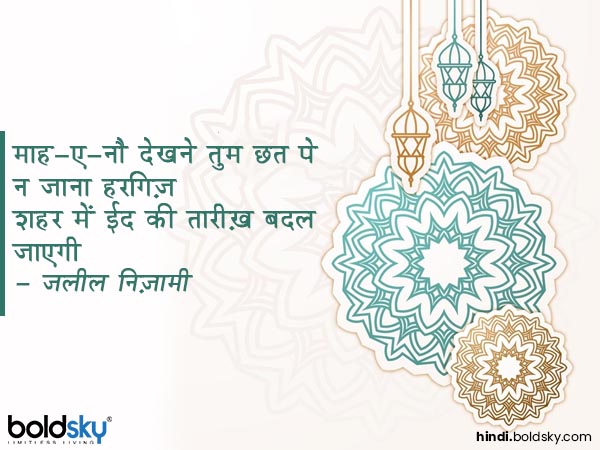 माह-ए-नौ देखने तुम छत पे
न जाना हरगिज़
शहर में ईद की तारीख़ बदल
जाएगी
- जलील निज़ामी
boldsky®
LIMITLESS LIVING
hindi.boldsky.com